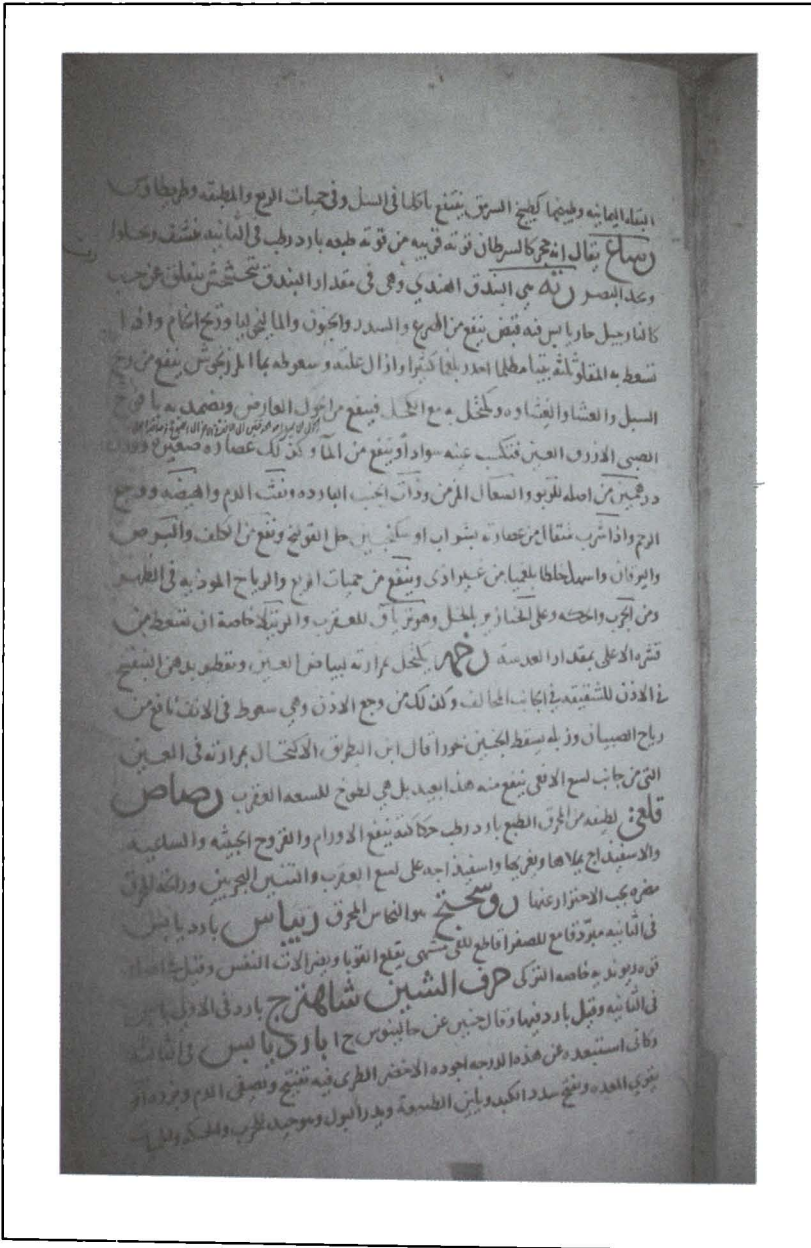 البقله اليمانيه وطبيخها كطبيخ السرمق ينتفع باكلها فى السل وفى حميات الربع والمطبقه
يقال انه حجر كالسرطان قوته قريبه من قوته طبعه بارد رطب فى الثانيه
ويحد البصر رته هى البندق الهندي وهى فى مقدار البندق ينفلق عن حب
كالنارجيل حار يابس فيه قبض ينفع من الصرع والسدر والجنون والماليخوليا وريح الخام واذا
تسعط به المفلوج ثلثه بيتا مظلما احدر بلغما كثيرا وازال علته وسعوطه بما المرزنجوش ينفع من ريح
السبل والعشا والغشاوه ويكتحل به مع الكحل فينفع من الحول العارض ويضمد به يافوخ
الصبى الازرق العين فتكسب عينه سوادا وينفع من الما وكذلك عصاره
درهمين من اصله للربو والسعال المزمن وذات الجنب البارده ونفث الدم والهيضه ووجع
الرحم واذا شرب مثقال من عصارته بشراب او سكنجبين حل القولنج ونفع من الكلف والبرص
واليرقان واسهل خلطا بلغميا من غير اذى وينفع من حميات الربع والرياح الموذيه فى الظهر
ومن الجرب والحكه وعلى الخنازير بالخل وهو ترياق للعقرب والرتيلا خاصة ان تسعط من
قشره الاعلى بمقدار العدسه رخمه يكتحل بمرارته لبياض العين ويقطر بدهن البنفسج
فى الاذن للشقيقه فى الجانب المخالف وكذلك من وجع الاذن وهى سعوط فى الانف نافع من
رياح الصبيان وزبله يسقط الجنين بخورا قال ابن البطريق الاكتحال بمرارته فى العين
التى من جانب لسع الافعى ينفع منه هذا بعيد بل هى لطوخ للسعه العقرب رصاص
قلعى لطيفه من المحرق الطبع بارد رطب حكاكته ينفع الاورام والقروح الخبيثه والساعيه
والاسفيذاج يملاها ويغريها واسفيذاجه على لسع العقرب والتنين البحريين ورائحه المحرق
مضره يجب الاحتراز عنها روسختج هو النحاس المحرق ريباس بارد يابس
فى الثانيه مبرد قامع للصفرا قاطع للقى مشهى يقلع القوبا ويضر الات النفس وقيل
قوه ريوندية خاصه التركى حرف الشين شاهترج بارد فى الاولى يابس
فى الثانيه وقيل بارد فيها وقال حنين عن جالينوس ج ا بارد يابس فى الثالثه
وكانى استبعده عن هذه الدرجه اجوده الاخضر الطرى فيه تفتيح ويصفى الدم وبزره
يقوى المعده ويفتح سدد الكبد ويلين الطبيعة ويدر البول وهو جيد للجرب والحكه